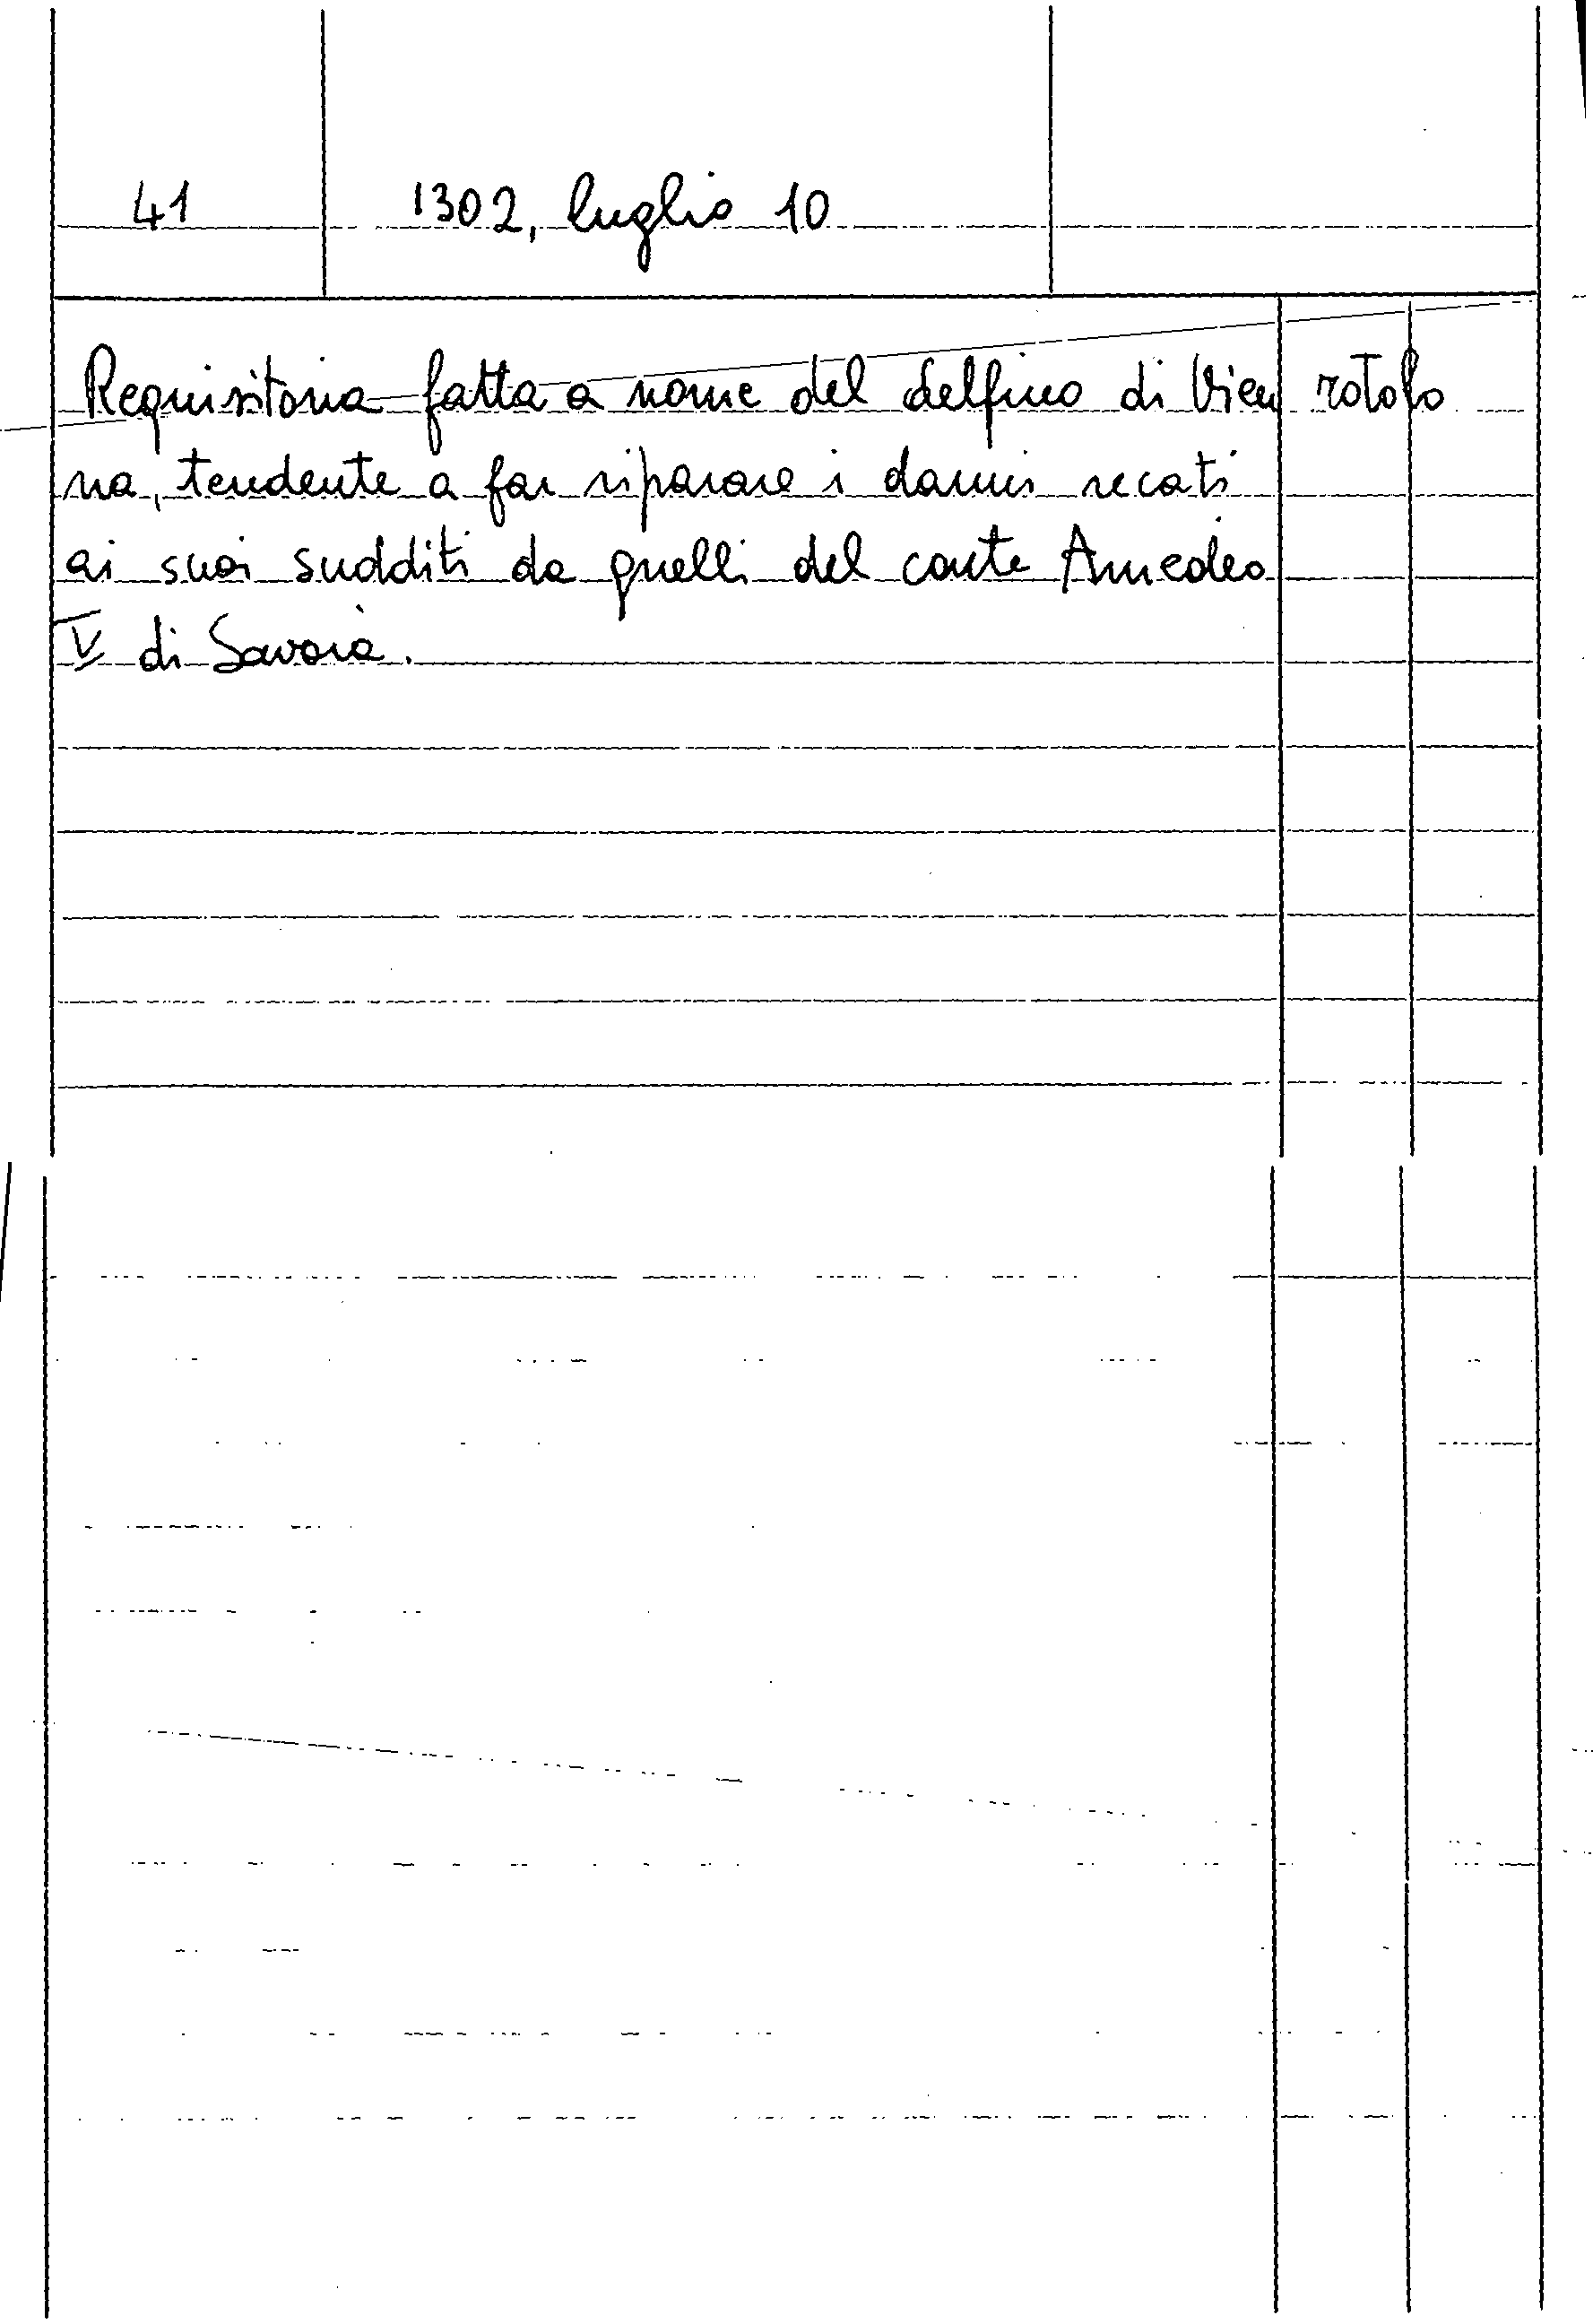 41 1302, luglio 10
Requisitoria fatta a nome del delfino di Vien rotolo
na, tendente a far riparare i danni recati
ai suoi sudditi da quelli del conte Amedeo
V di Savoia.